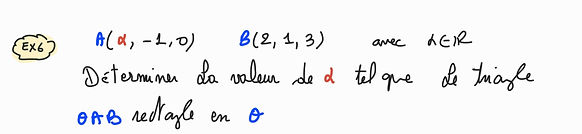 EX6 A(α, -1, 0) B(2, 1, 3) avec α∈ℝ
Déterminer la valeur de α tel que le triangle
OAB rectagle en O